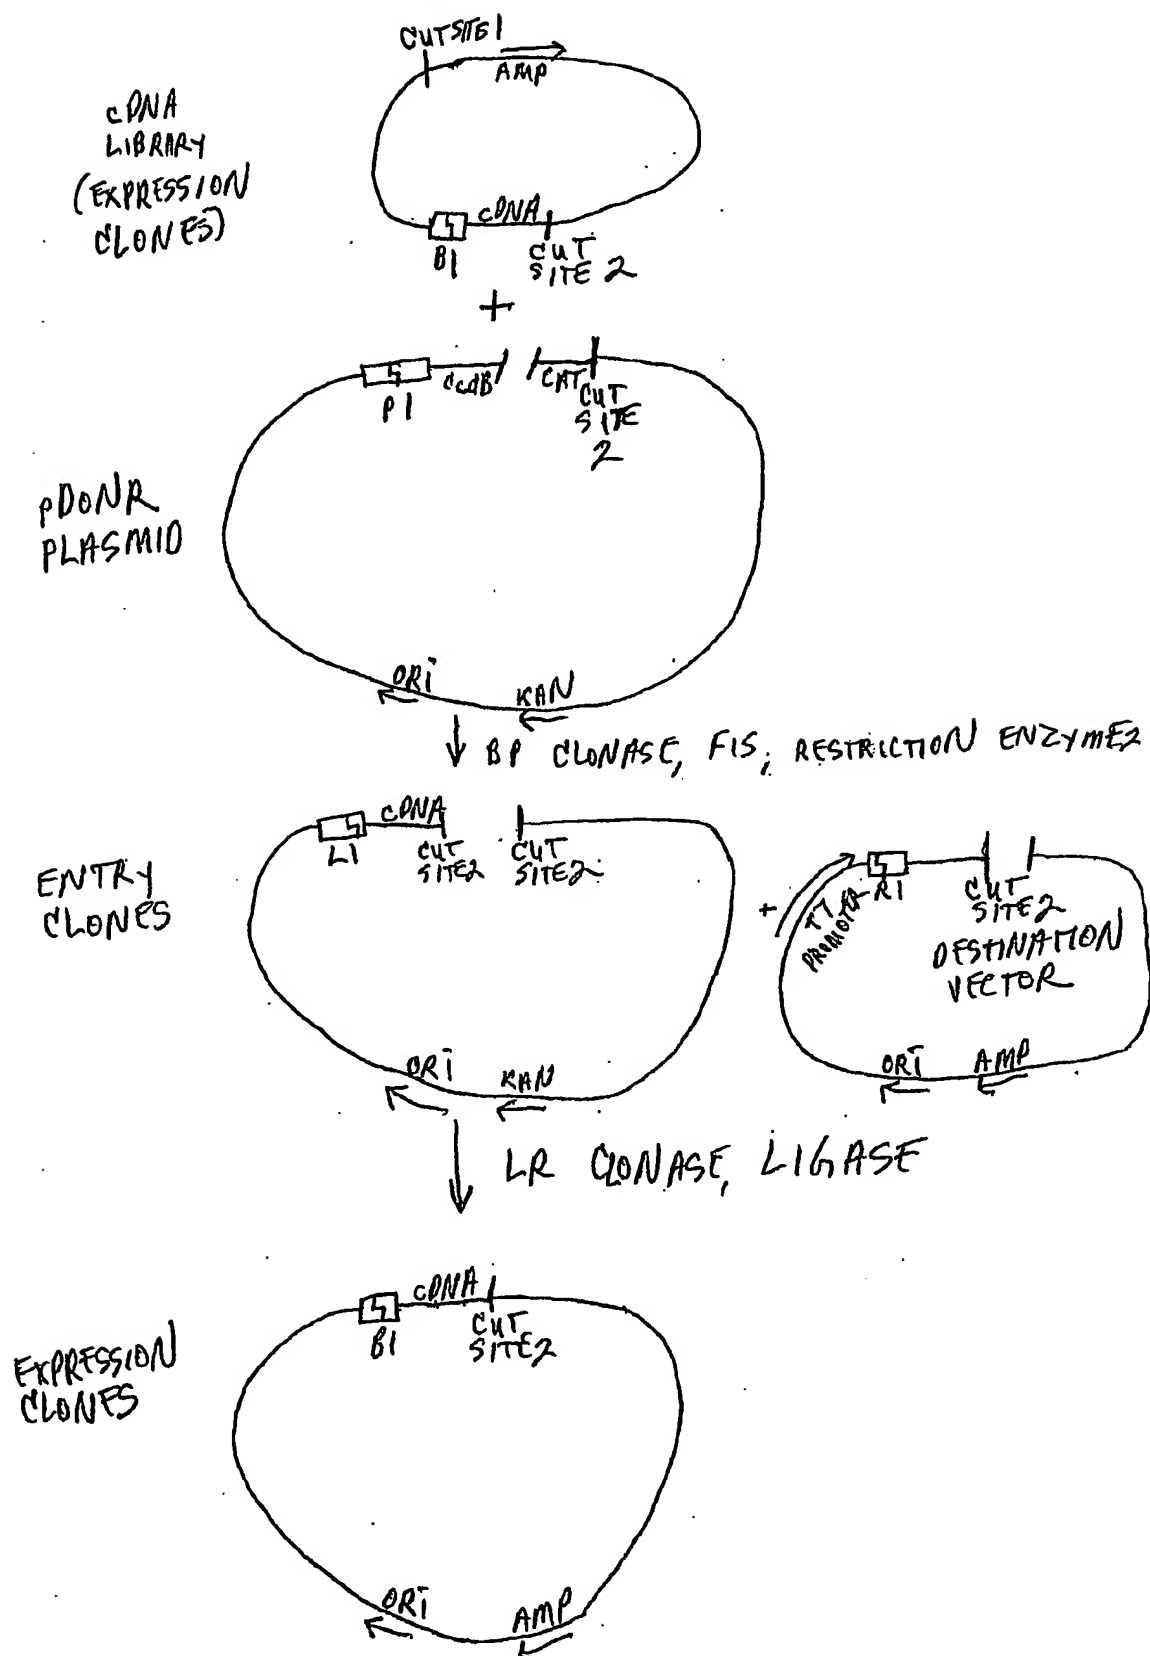 CUTSITE1
AMP
cDNA
LIBRARY
(EXPRESSION
CLONES)
cDNA
B1
CUT
SITE 2
+
P1
CcdB
CAT
CUT
SITE
2
pDONR
PLASMID
ORI
KAN
BP CLONASE, FIS, RESTRICTION ENZYME2
ENTRY
CLONES
L1
cDNA
CUT
SITE2
CUT
SITE2
ORI
KAN
+
T7
PROMOTER
R1
CUT
SITE2
DESTINATION
VECTOR
ORI
AMP
LR CLONASE, LIGASE
EXPRESSION
CLONES
B1
cDNA
CUT
SITE2
ORI
AMP